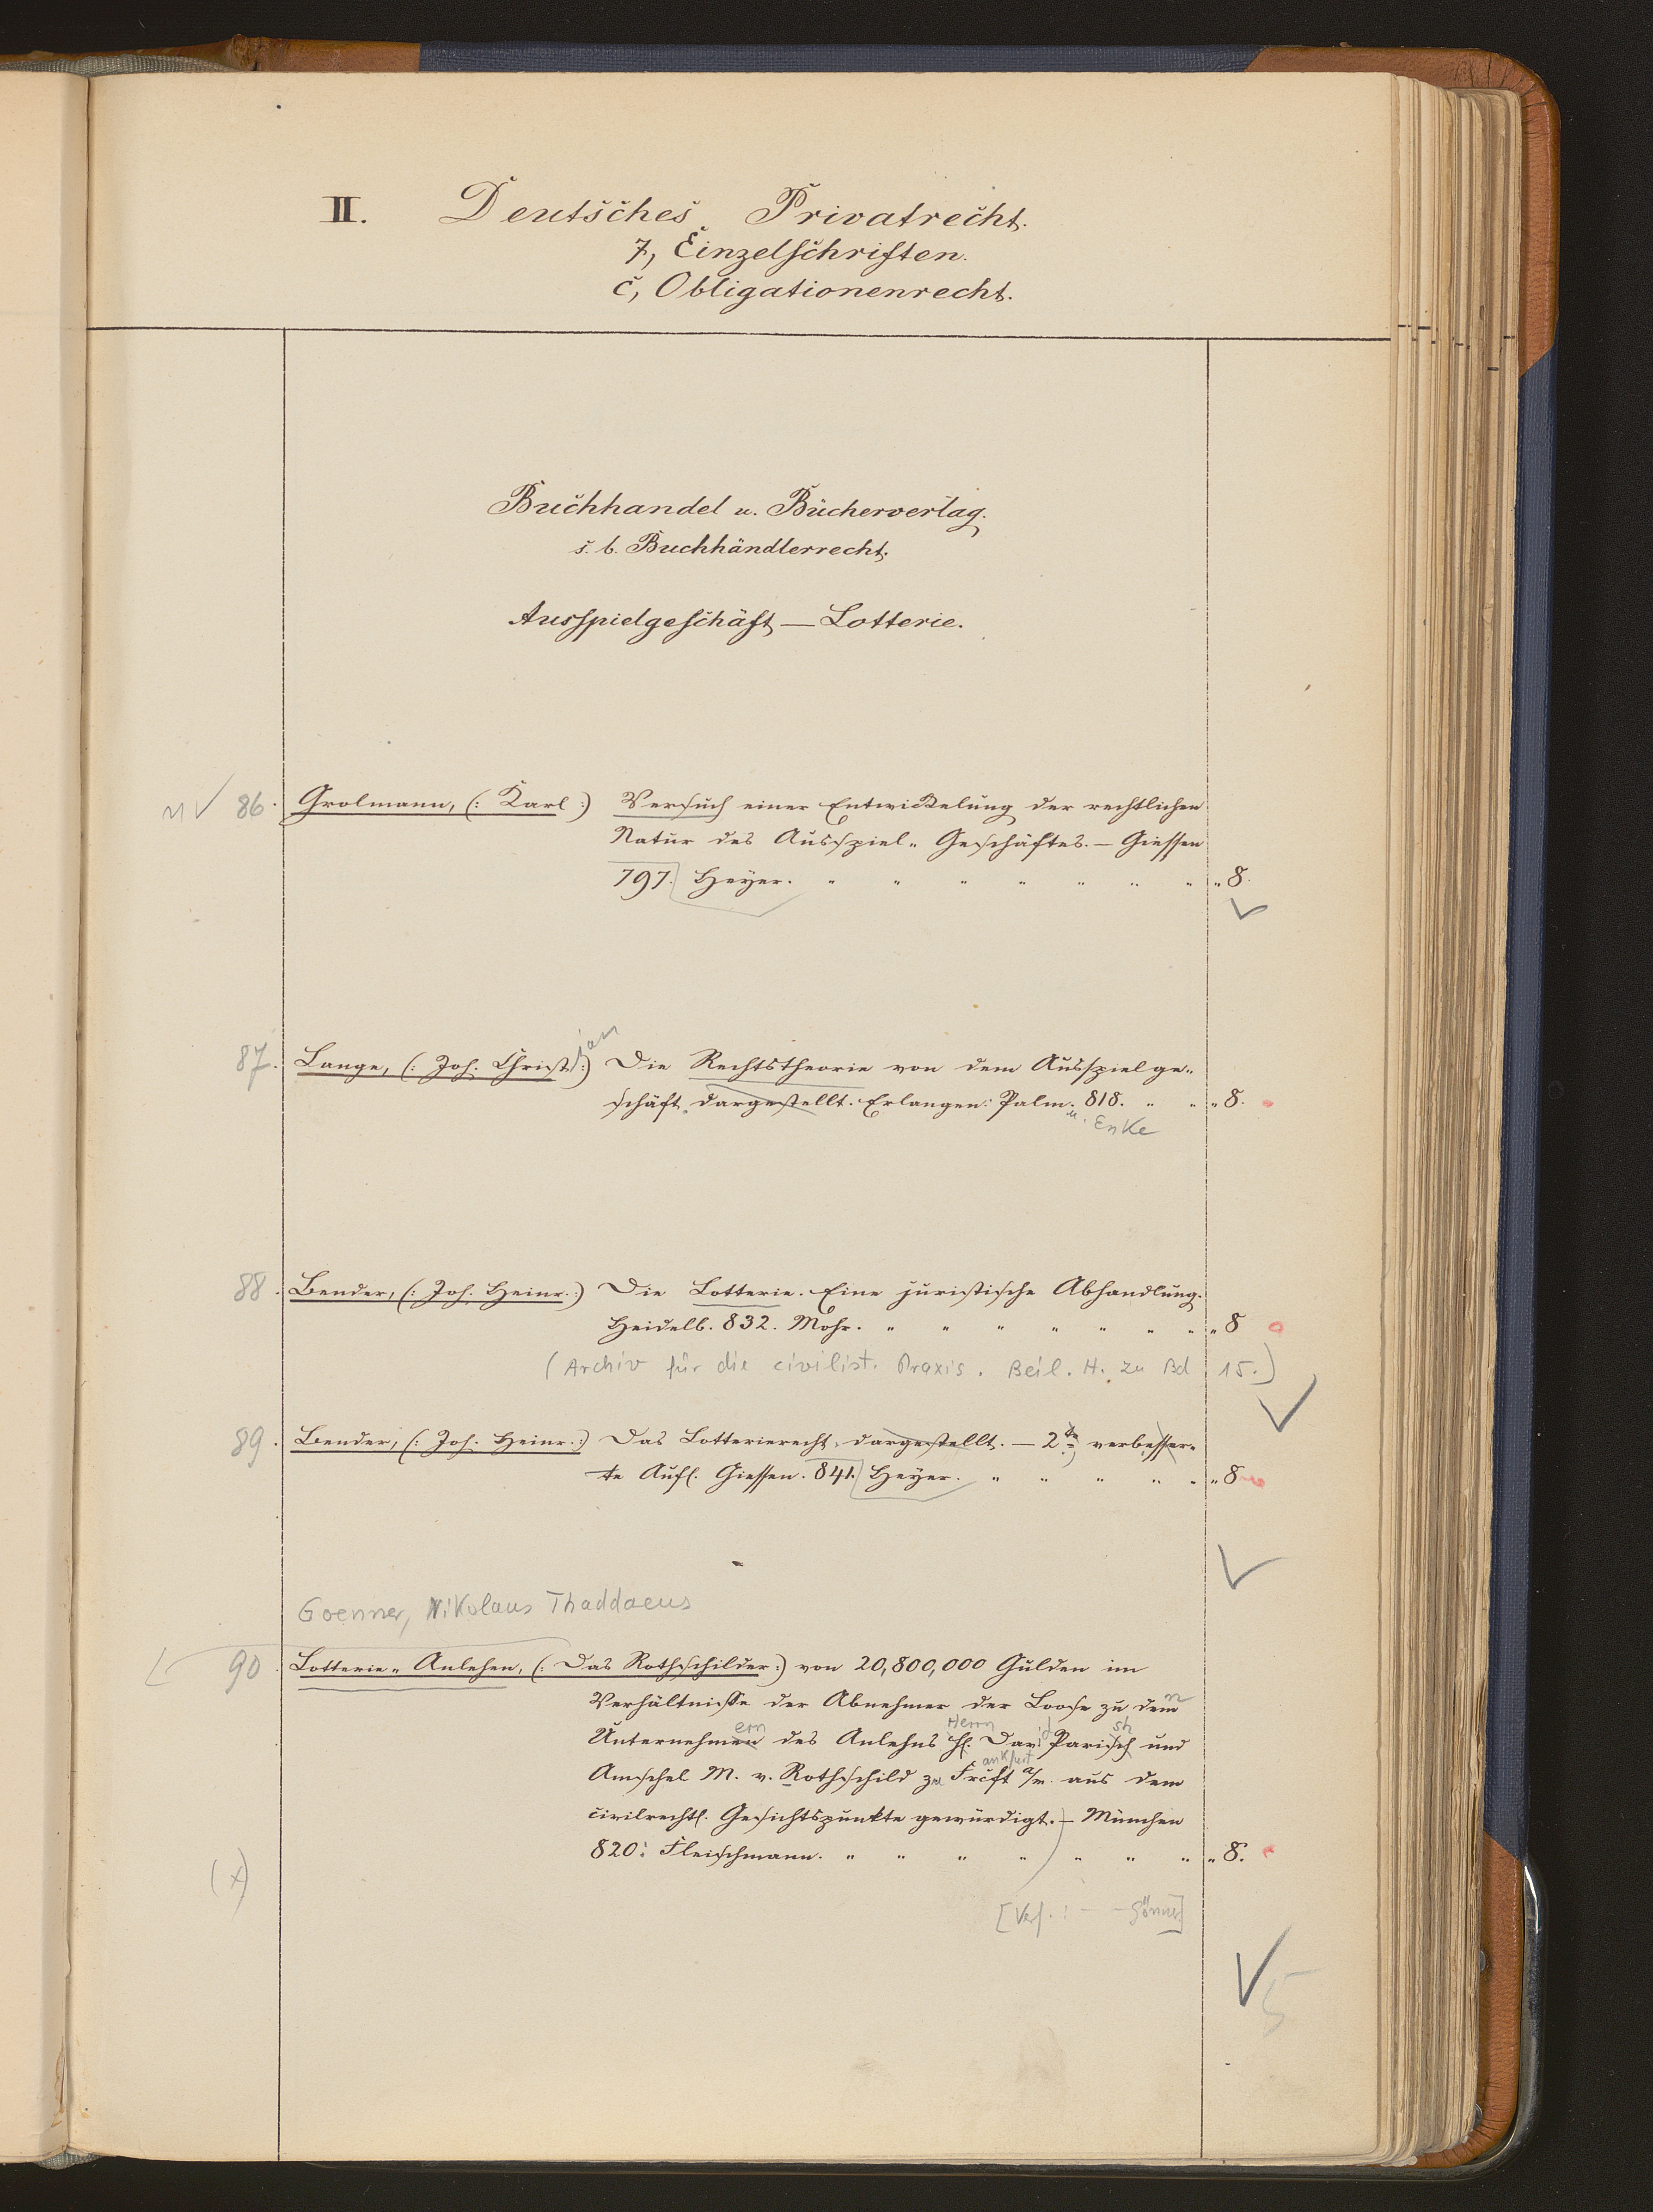 II. Deutsches Privatrecht.
7, Einzelschriften.
c, Obligationenrecht.
Buchhandel u. Bücherverlag.
s. b. Buchhändlerrecht.
Ausspielgeschäft — Lotterie.
86. Grolmann, (: Karl :) Versuch einer Entwickelung der rechtlichen
Natur des Ausspiel-Geschäftes. — Giessen
797. Heyer. " " " " " " " " 8.
ian
87. Lange, (: Joh. Christ :) Die Rechtstheorie von dem Ausspielge-
schäft dargestellt. Erlangen: Palm. 818. " " " 8.
u. Enke
88. Bender, (: Joh. Heinr. :) Die Lotterie. Eine juristische Abhandlung.
Heidelb. 832. Mohr. " " " " " " " " 8
(Archiv für die civilist. Praxis. Beil. H. zu Bd 15.)
89. Bender, (: Joh. Heinr. :) Das Lotterierecht, dargestellt. — 2te verbesser-
te Aufl. Giessen. 841. Heyer. " " " " " " 8
Goenner, Nikolaus Thaddaeus
90 Lotterie-Anlehen, (: Das Rothschilder :) von 20,800,000 Gulden im
Verhältnisse der Abnehmer der Loose zu dem
n
ern Herrn d sh
Unternehmen des Anlehns H. Dav. Parisch und
ankfurt
Amschel M. v. Rothschild zu Frcft a/m. aus dem
civilrechtl. Gesichtspunkte gewürdigt. — München
820: Fleischmann. " " " " " " " " 8.
(x)
[Verf.: — — Gönner]
5